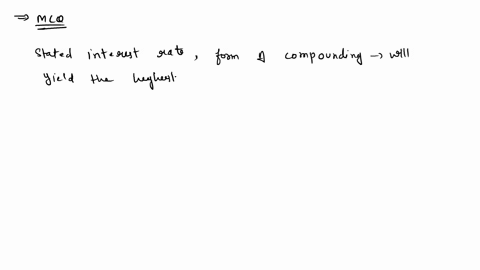 ⇒ MCQ
Stated interest rate, form of compounding → will
yield the highest.